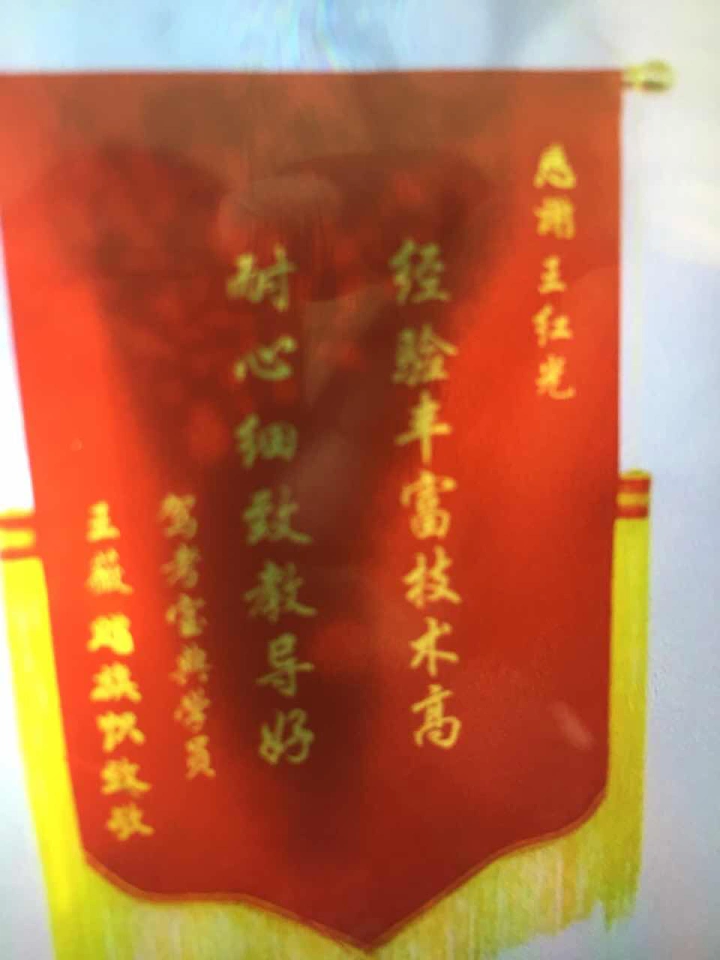 感谢王红光
经验丰富技术高
耐心细致教导好
驾考宝典学员
王薇赐旗帜致敬